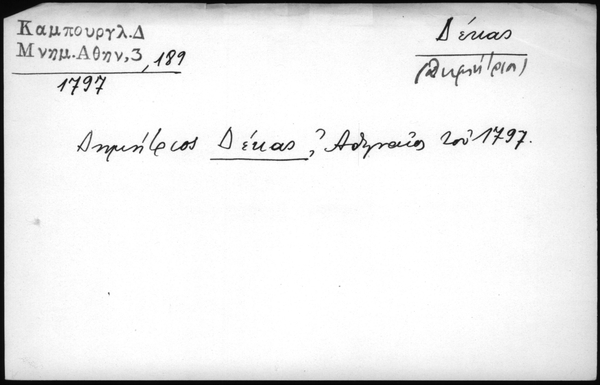 Καμπουργλ.Δ
Μνημ.Αθην,3, 189
1797
Δέκας
(Δημήτριος)
Δημήτριος Δέκας, Ἀθηναῖος τοῦ 1797.